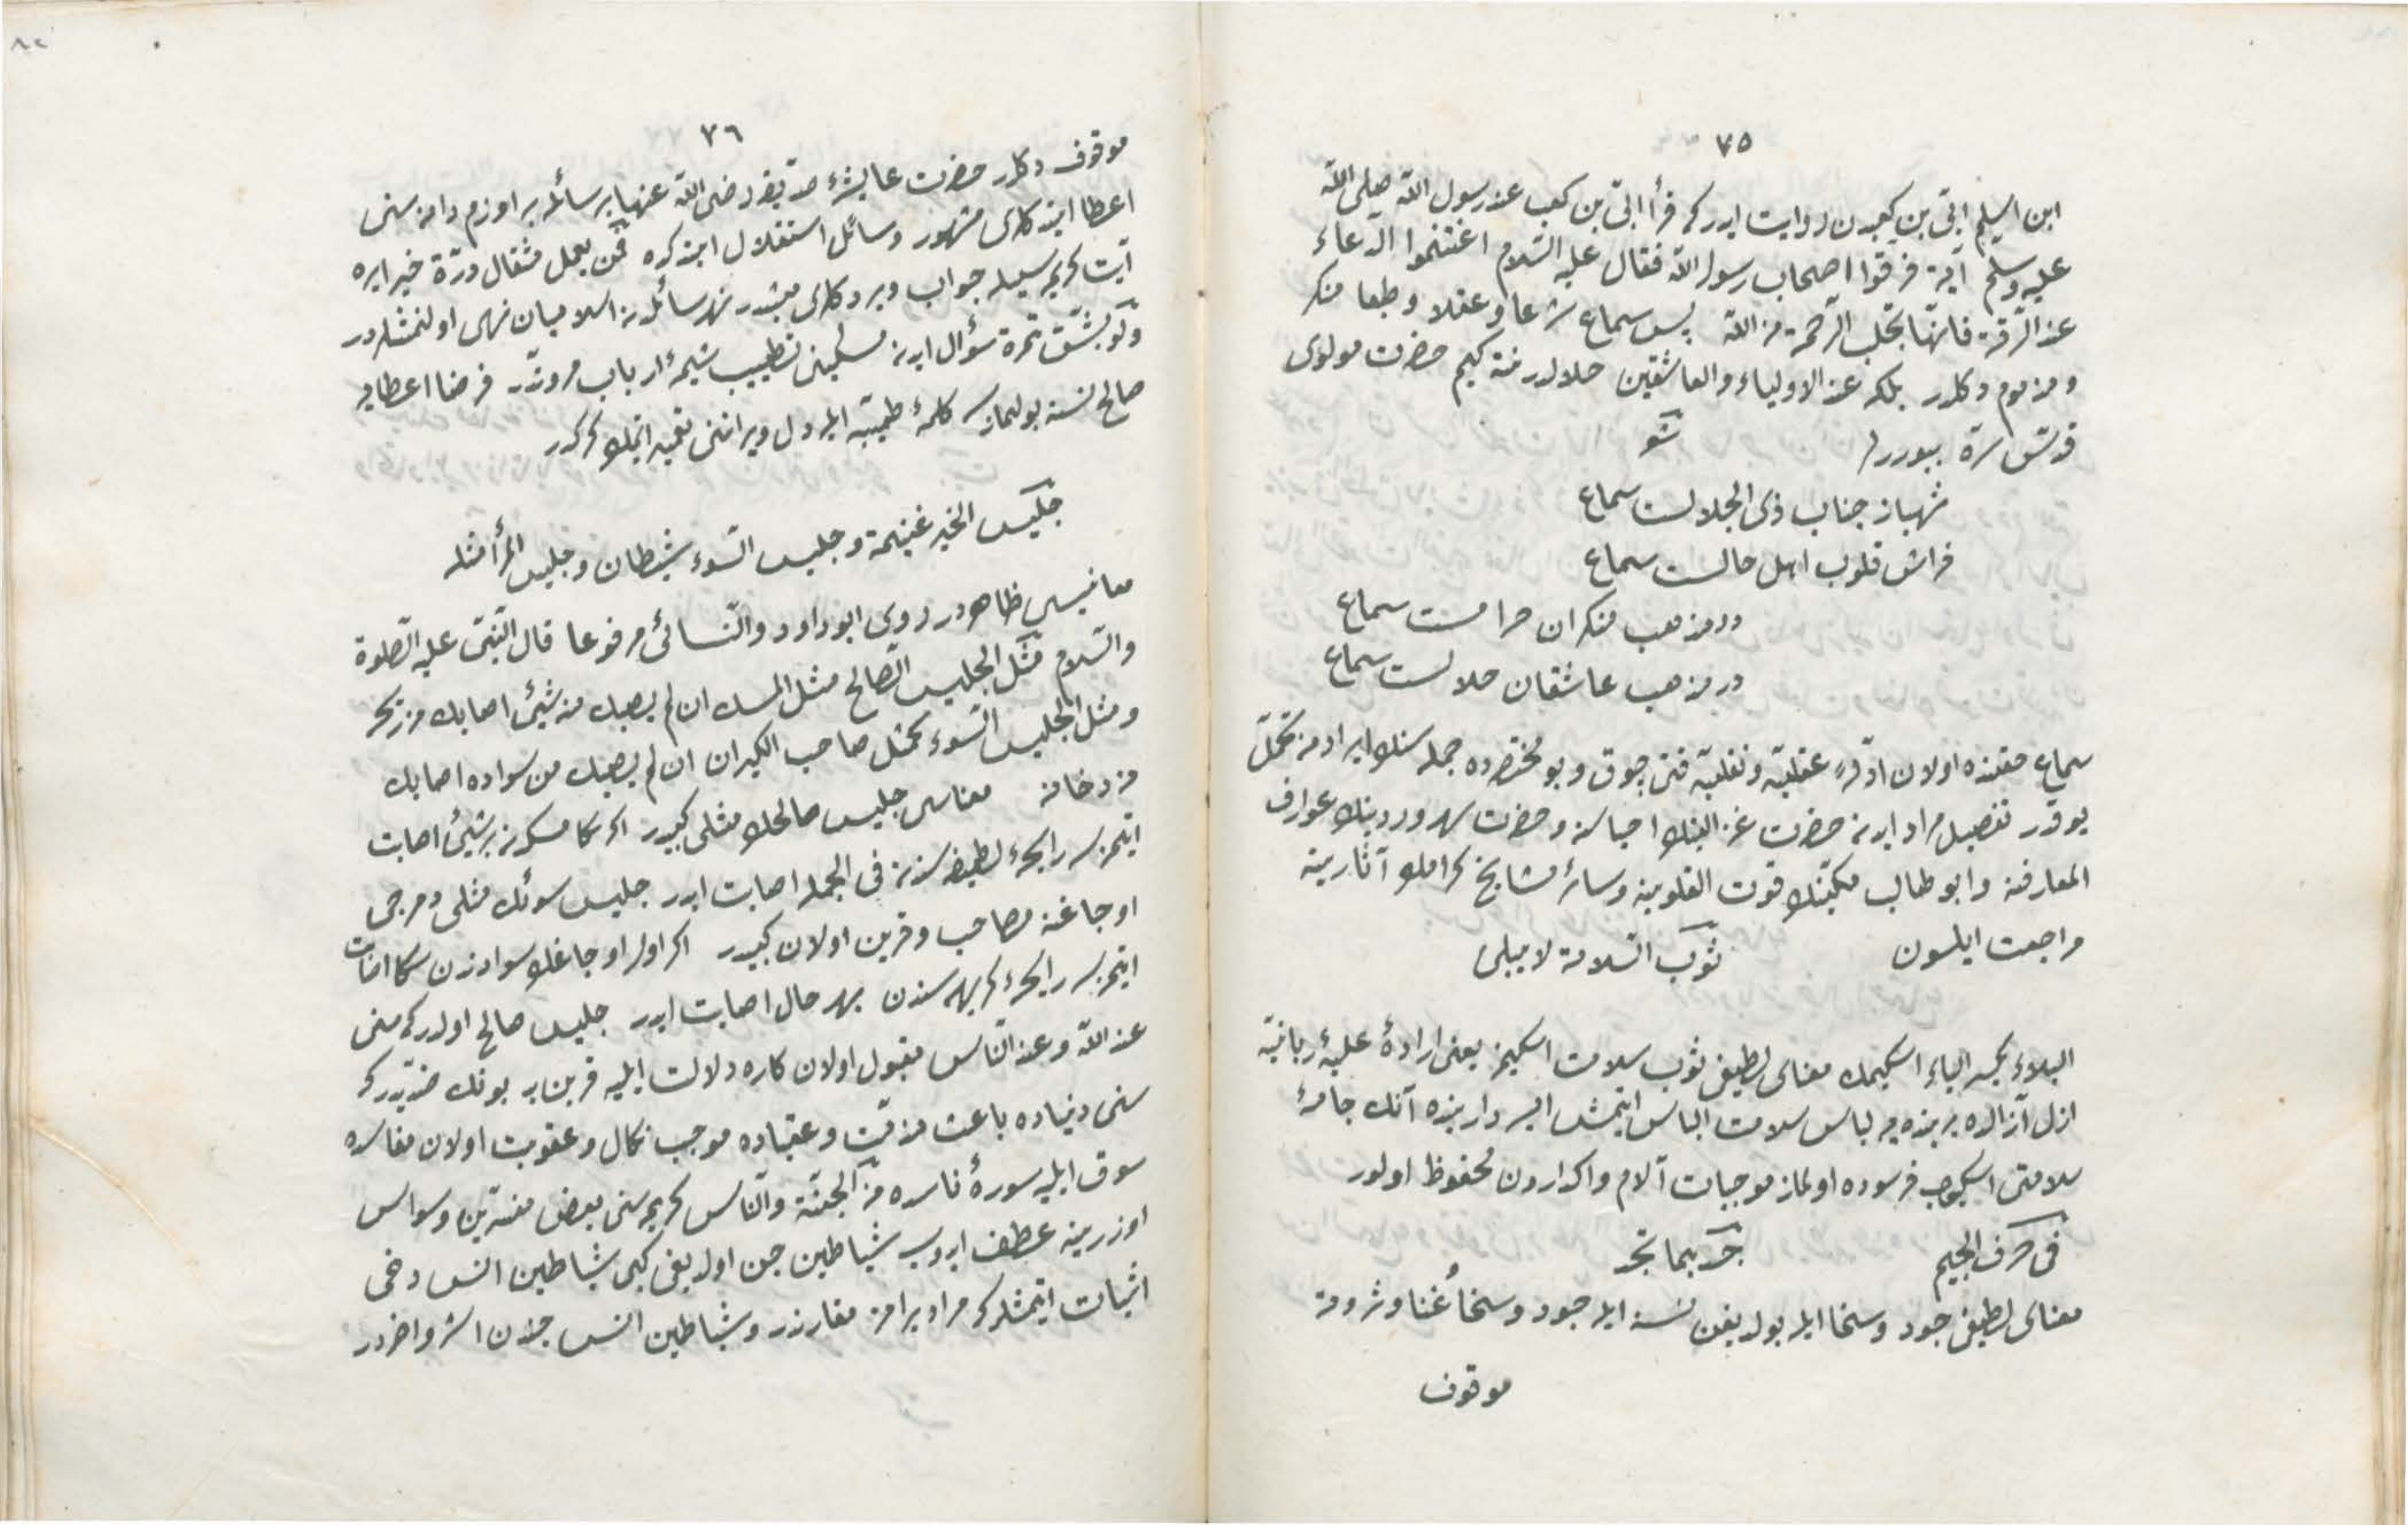 ٧٥
ابن اسلم ابىّ بن كعبدن روايت ايدر كه قرأ ابىّ بن كعب عند رسول اللّه صلى اللّه
عليه وسلم آية فرقوا اصحاب رسول اللّه فقال عليه السّلام اغتنموا الدّعاء
عند الرّقة فانّها تجلب الرّحمة من اللّه پس سماع شرعا وعقلا وطبعا منكر
ومذموم دكلدر بلكه عند الاولياء والعاشقين حلالدر نته كيم حضرت مولوى
قدّس سرّه بيوررلر شعر
شهباز جناب ذى الجلالست سماع
فراش قلوب اهل حالست سماع
در مذهب منكران حرامست سماع
در مذهب عاشقان حلالست سماع
سماع حقنده اولان ادلّهء عقليّه ونقليّه قتى چوق وبو مختصرده جمله سنك ايرادينه تحمّل
يوقدر تفصيل مراد ايدن حضرت غزالينك احياسنه وحضرت سهروردينك عوارف
المعارفنه وابو طالب مكّينك قوت القلوبينه وسائر مشايخ كرامك آثارينه
مراجعت ايلسون ثوب السّلامة لا يبلى
البلاء بكسر الباء اسكيمك معناى لطيفى ثوب سلامت اسكيمز يعنى ارادهٔ عليهٔ ربانيّه
ازل آزالده بر بنده يه لباس سلامت الباس ايتمش ايسه دارينده آنك جامهٔ
سلامتى اسكيوب فرسوده اولماز موجبات آلام واكداردن محفوظ اولور
فى حرف الجيم جد بما تجد
معناى لطيفى جود وسخا ايله بولديغن نسنه ايله جود وسخا غنا وثروته
موقوف
٧٦
موقوف دكلدر حضرت عايشهٔ صديقه رضى اللّه عنها بر سائله بر اوزم دانه سنى
اعطا ايتدكلرى مشهور وسائل استقلال ايتدكده فمن يعمل مثقال ذرّة خيرا يره
آيت كريمه سيله جواب ويردكلرى مبيّندر نهر سائلدن اسلاميان نهى اولنمشلردر
ولو بشقّ تمرة سؤال ايدن مسكينى تطييب شيمهٔ ارباب مروّتدر فرضا اعطايه
صالح نسنه بولنمازسه كلمهٔ طيّبه ايله دل ويراننى تعمير ايتمك كركدر
جليس الخير غنيمة وجليس السّوء شيطان وجليس المرأ مثله
معانيسى ظاهردر روى ابو داود والنّسائى مرفوعا قال النّبىّ عليه الصّلوة
والسّلام مثل الجليس الصّالح مثل المسك ان لم يصبك منه شيئ اصابك من ريحه
ومثل الجليس السّوء كمثل صاحب الكيران ان لم يصبك من سواده اصابك
من دخانه معناسى جليس صالحك مثلى كبيدر اكر سكا مسكدن بر شيئ اصابت
ايتمزسه رايحهٔ لطيفه سندن فى الجمله اصابت ايدر جليس سوئك مثلى دمرجى
اوجاغنه مصاحب وقرين اولان كبيدر اكر اول اوجاغك سوادندن سكا اصابت
ايتمزسه رايحهٔ كريهه سندن بهر حال اصابت ايدر جليس صالح اولدر كه سنى
عند اللّه وعند النّاس مقبول اولان كاره دلالت ايليه قرين بد بونك ضدّيدر كه
سنى دنياده باعث مذمّت وعقباده موجب نكال وعقوبت اولان مفاسده
سوق ايليه سورهٔ ناسده من الجنّة والنّاس كريمه سنى بعض مفسّرين وسواس
اوزرينه عطف ايدوب شياطين جن اولديغى كبى شياطين انس دخى
اثبات ايتمشلر كه مراد برامز مقارندر وشياطين انس جندن اشرّ واضردر